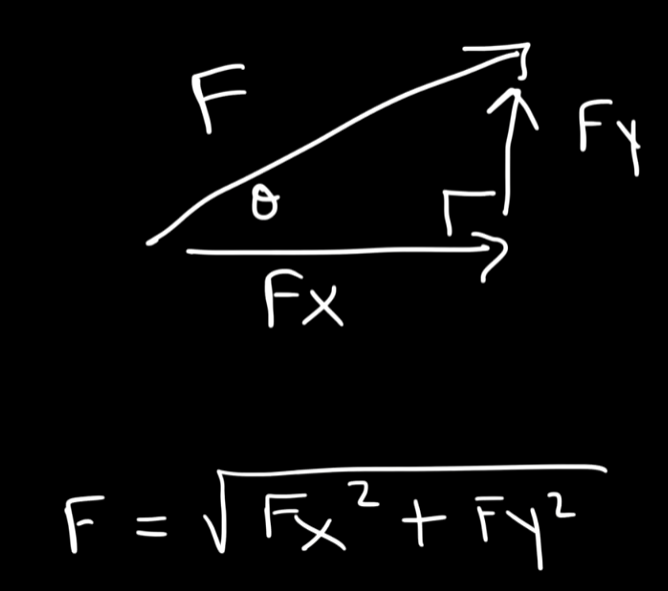 F
Fy
θ
Fx
F = √(Fx² + Fy²)